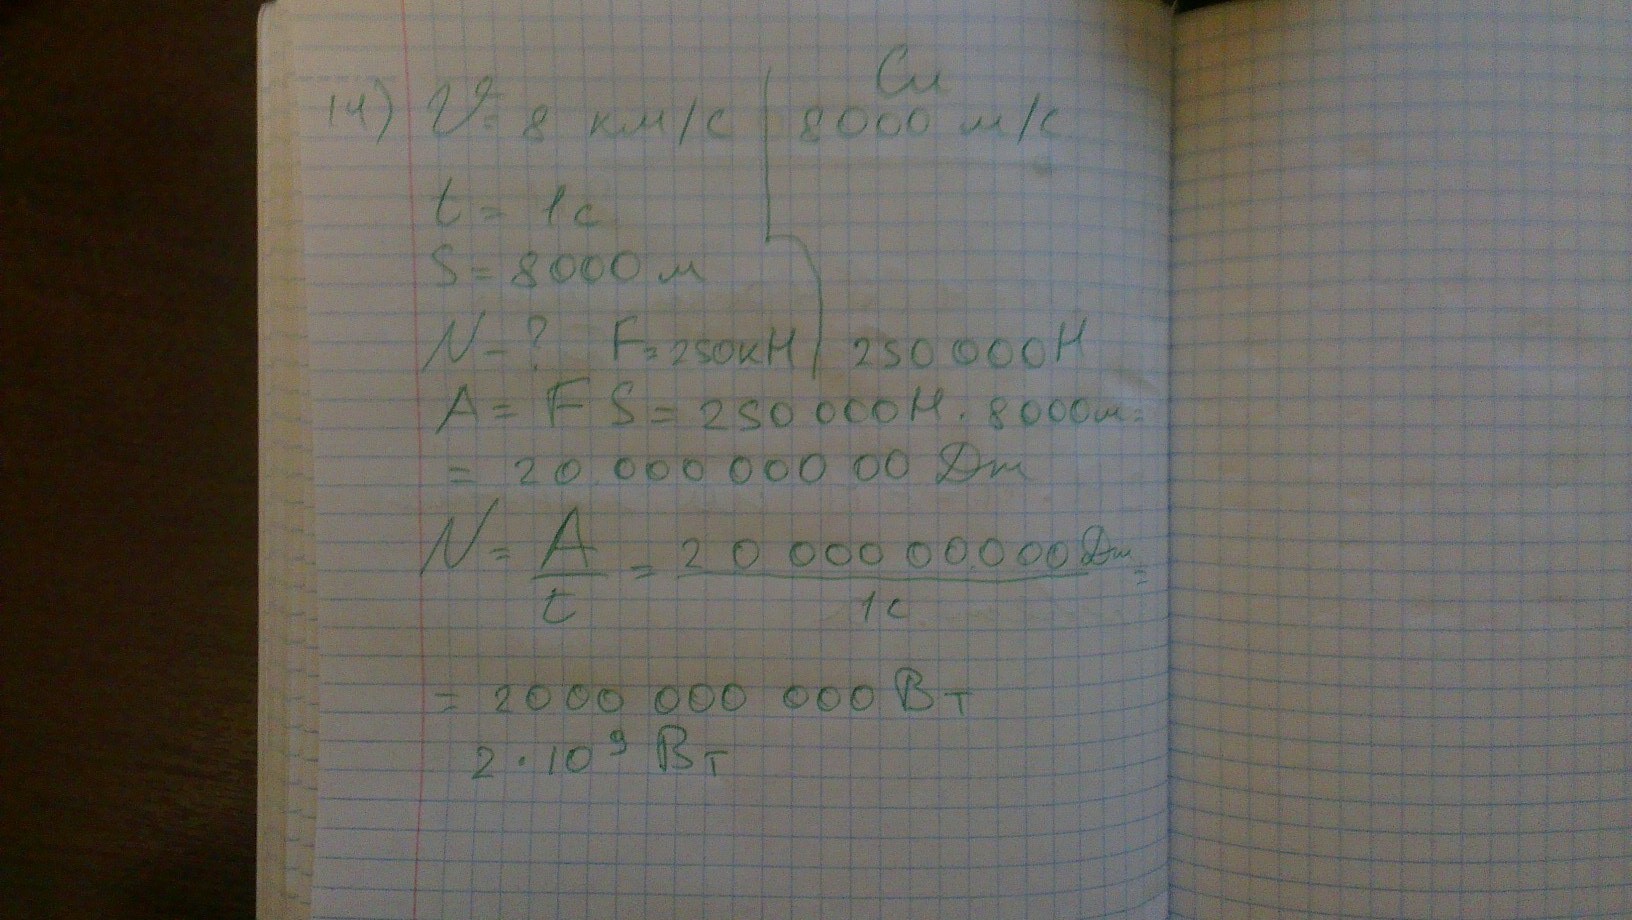 Си
14) V = 8 км/с | 8000 м/с
t = 1с
S = 8000 м
N - ? F = 250кН | 250 000Н
A = F S = 250 000Н · 8000м =
= 20 000 000 00 Дж
N = A/t = 20 000 00000 Дж/1с =
= 2000 000 000 Вт
2 · 10⁹ Вт